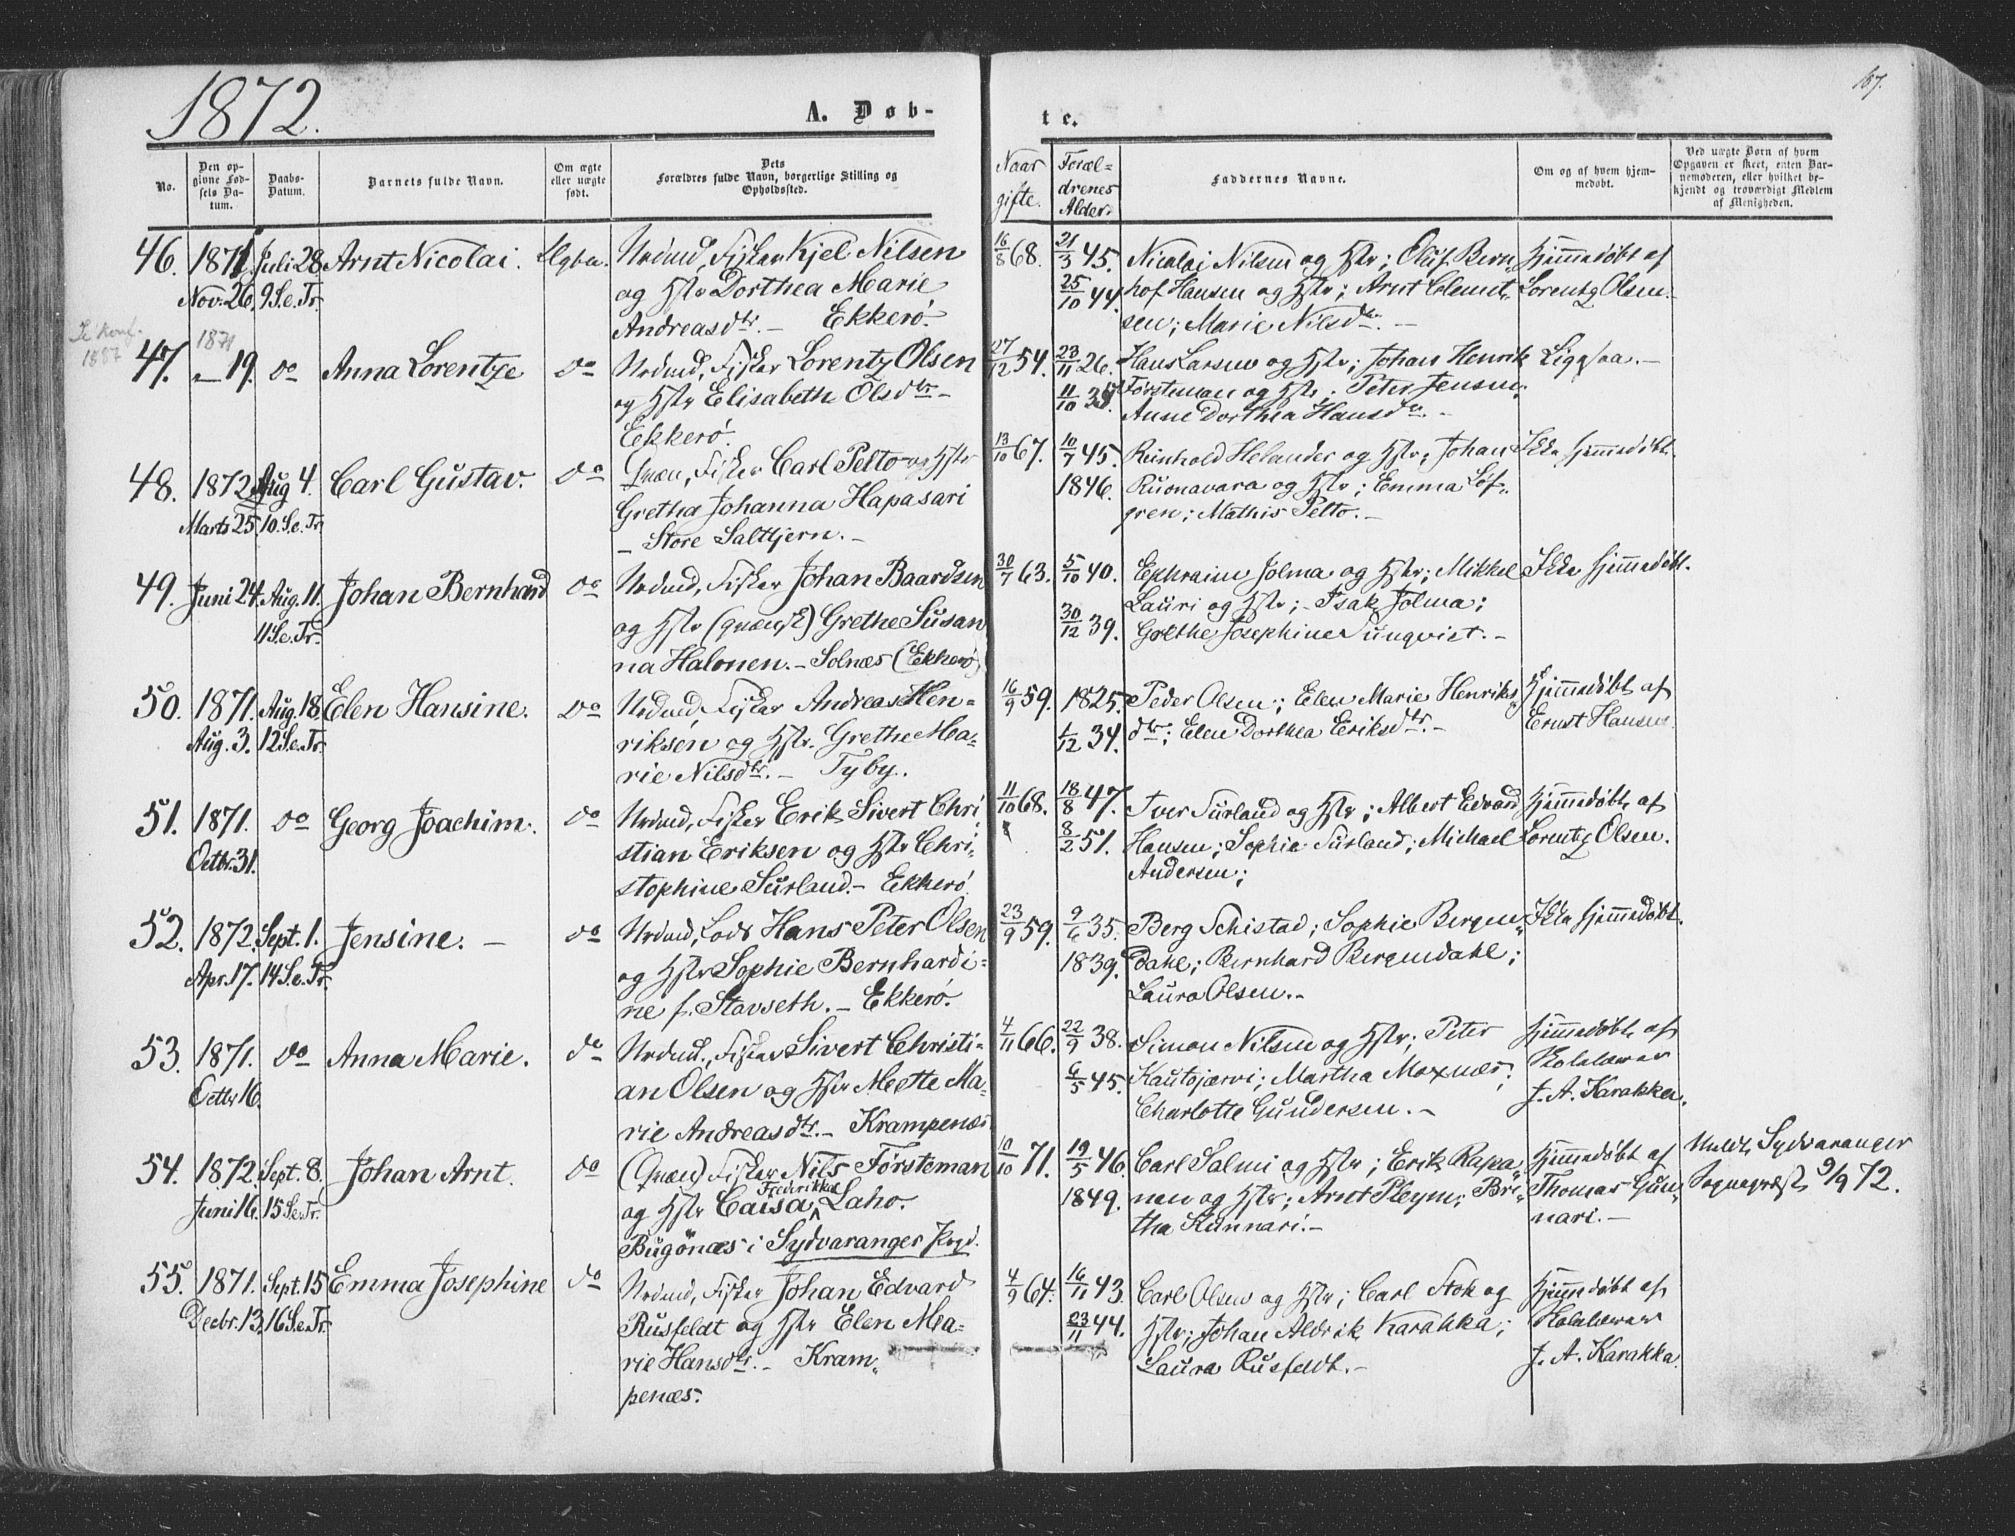 1872.
A. Døb-
te.
167.
No.
Den opgivne Fødsels Datum.
Daabs-Datum.
Barnets fulde Navn.
Om ægte eller uægte født.
Dets Forældres fulde Navn, borgerlige Stilling og Opholdssted.
Naar gifte.
Forældrenes Alder.
Faddernes Navne.
Om og af hvem hjemmedøbt.
Ved uægte Børn af hvem Opgaven er skeet, enten Barnemoderen, eller hvilket bekjendt og troværdigt Medlem af Menigheden.
46. 1871 Juli 28 Arnt Nicolai. Nrdmd, Fisker Kjel Nilsen 16/8 68. 21/3 45. Nicolai Nilsen og Hstr; Oluf Bern- Hjemmedøbt af
Nov. 26. 9 S. e. Tr. og Hstr Dorthea Marie 25/10 44. hof Hansen og Hstr; Arnt Clemet- Lorentz Olsen.
Andreasdtr. — Ekkerø. sen; Marie Nilsdtr. —
Se konf. 1887
1871
47. — 19. do Anna Lorentze do Nrdmd, Fisker Lorentz Olsen 27/12 54. 23/11 26. Hans Larsen og Hstr; Johan Henrik Ligesaa. —
og Hstr Elisabeth Olsdtr — 11/10 Førsteman og Hstr; Peter Jensen;
Ekkerø. Anne Dorthea Hansdtr. —
48. 1872 Aug 4. Carl Gustav. do Qvæn, Fisker Carl Pelto og Hstr 13/10 67. 10/7 45. Reinhold Helander og Hstr; Johan Ikke hjemmedøbt.
Marts 25. 10. S. e. Tr. Gretha Johanna Hapasari 1846. Ruonavara og Hstr; Emma Løf-
— Store Saltjern. — gren; Mathis Pelto. —
49. Juni 24. Aug. 11. Johan Bernhard do Nrdmd, Fisker Johan Baardsen 30/7 63. 5/10 40. Ephraim Jolma og Hstr; Mikkel Ikke hjemmedøbt.
11 S. e. Tr. og Hstr (qvænsk) Grethe Susan- 30/12 39. Lauri og Hstr; — Isak Jolma;
na Halonen. — Solnæs (Ekkerø) Grethe Josephine Sunqvist. —
50. 1871. Aug. 18. Elen Hansine. do Nrdmd, Fisker Andreas Hen- 16/9 59. 1825. Peder Olsen; Elen Marie Henriks- Hjemmedøbt af
Aug. 3. 12 S. e. Tr. riksen og Hstr. Grethe Ma- 1/12 34. dtr; Elen Dorthea Eriksdtr. — Ernst Hansen
rie Nilsdtr. — Tyby.
51. 1871. do Georg Joachim. do Nrdmd, Fisker Erik Sivert Chri- 11/10 68. 18/8 47. Iver Surland og Hstr; Albert Edvard Hjemmedøbt af
Octbr. 31. stian Eriksen og Hstr Chri- 8/2 51. Hansen; Sophia Surland; Michael Lorentz Olsen.
stophine Surland. — Ekkerø. Andersen;
52. 1872. Sept. 1. Jensine. — do Nrdmd, Lods Hans Peter Olsen 23/9 59. 9/6 35. Berg Schistad; Sophie Bergen- Ikke hjemmedøbt.
Apr. 17. 14 S. e. Tr. og Hstr Sophie Bernhardi- 1839. dahl; Bernhard Bergendahl;
ne f. Stavseth. — Ekkerø. Laura Olsen. —
53. 1871. do Anna Marie. do Nrdmd., Fisker Sivert Christi- 4/11 66. 22/9 38. Simon Nilsen og Hstr; Peter Hjemmedøbt af
Octbr 16. an Olsen og Hstr Mette Ma- 6/5 45. Kautojærvi; Martha Moxnæs;
rie Andreasdtr. — Krampenæs Charlotte Gundersen. — J. A. Karakka.
54. 1872. Sept. 8. Johan Arnt. do (Qvæn) Fisker Nils Førsteman 10/10 71. 19/5 46. Carl Salmi og Hstr; Erik Rapa- Hjemmedøbt af Meldt Sydvaranger
Juni 16. 15 S. e. Tr. og Hstr Caisa Frederikka Laho. 1849. nen og Hstr; Arnt Pleym; Bri- Thomas Gun- Sognepræst 9/9 72.
Bugønæs i Sydvaranger Prgd. tha Kunnari. — nari. —
55. 1871. Sept. 15 Emma Josephine do Nrdmd, Fisker Johan Edvard 4/9 64. 16/11 43. Carl Olsen og Hstr; Carl Stok og Hjemmedøbt af
Decbr. 13. 16 S. e. Tr. Rusfeldt og Hstr Elen Ma- 23/11 44. Hstr; Johan Aldrik Karakka;
rie Hansdtr. — Kram- Laura Rusfeldt. — J. A. Karakka.
penæs.